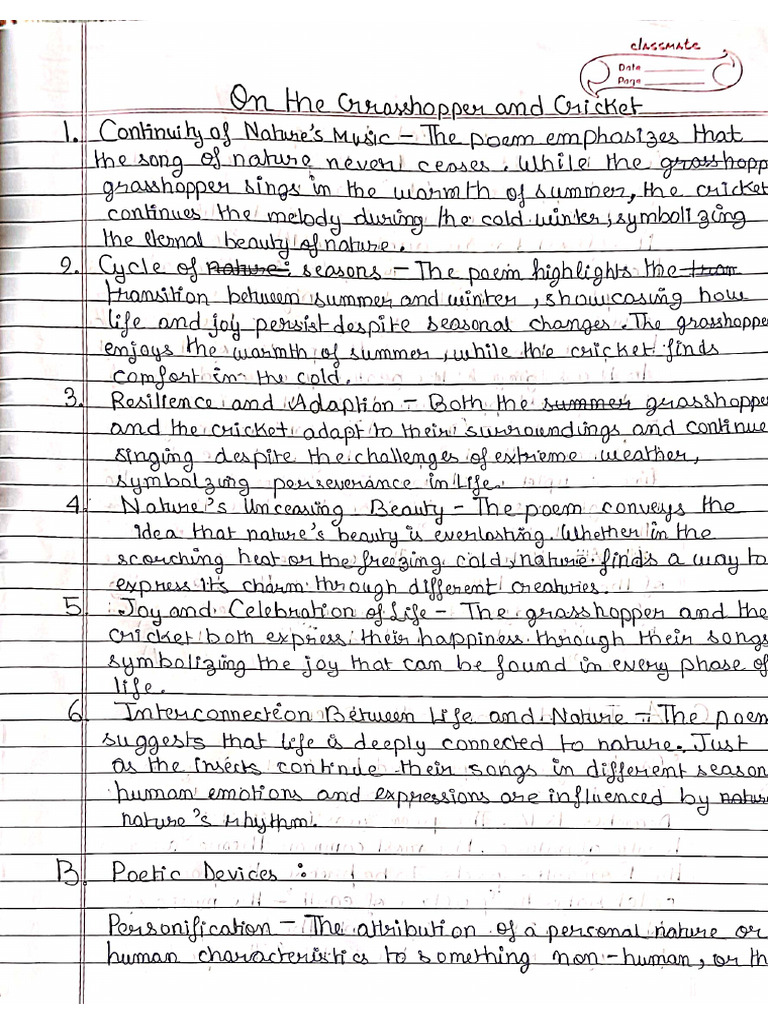 classmate
Date
Page
On the Grasshopper and Cricket
1. Continuity of Nature's Music – The poem emphasizes that
the song of nature never ceases. While the grasshopp
grasshopper sings in the warmth of summer, the cricket
continues the melody during the cold winter, symbolizing
the eternal beauty of nature.
2. Cycle of nature: seasons – The poem highlights the tran
transition between summer and winter, showcasing how
life and joy persist despite seasonal changes. The grasshoppe
enjoys the warmth of summer, while the cricket finds
comfort in the cold.
3. Resilience and Adaption – Both the summer grasshoppe
and the cricket adapt to their surroundings and continue
singing despite the challenges of extreme weather,
symbolzing perseverance in life.
4. Nature's Unceasing Beauty – The poem conveys the
idea that nature's beauty is everlasting. Whether in the
scorching heat or the freezing cold, nature finds a way to
express its charm through different creaturies.
5. Joy and Celebration of Life – The grasshopper and the
cricket both express their happiness through their songs
symbolizing the joy that can be found in every phase of
life.
6. Interconnection Between Life and Nature – The poem
suggests that life is deeply connected to nature. Just
as the insects continue their songs in different season
human emotions and expressions are influenced by nature
nature's rhythm.
B. Poetic Devices :
Personification – The attribution of a personal nature or
human characteristics to something non-human, or th